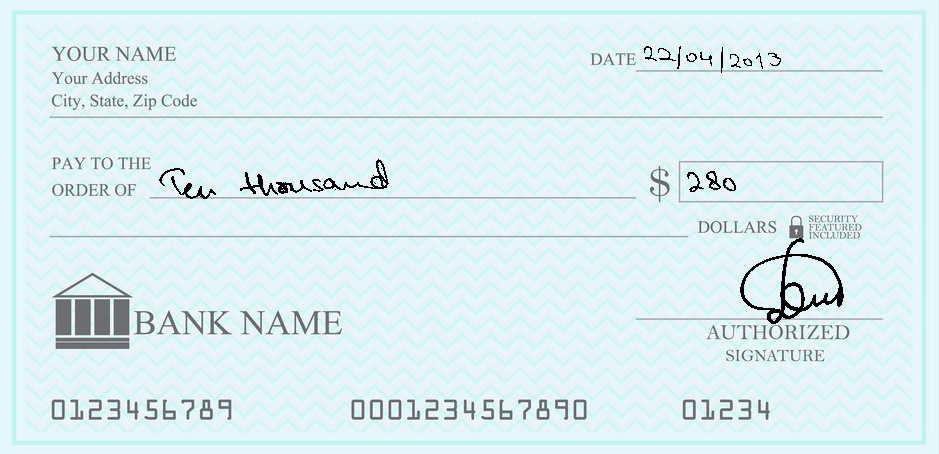 YOUR NAME
Your Address
City, State, Zip Code
DATE 22/04/2013
PAY TO THE
ORDER OF Ten thousand
$ 280
DOLLARS
SECURITY
FEATURED
INCLUDED
BANK NAME
AUTHORIZED
SIGNATURE
0123456789 0001234567890 01234